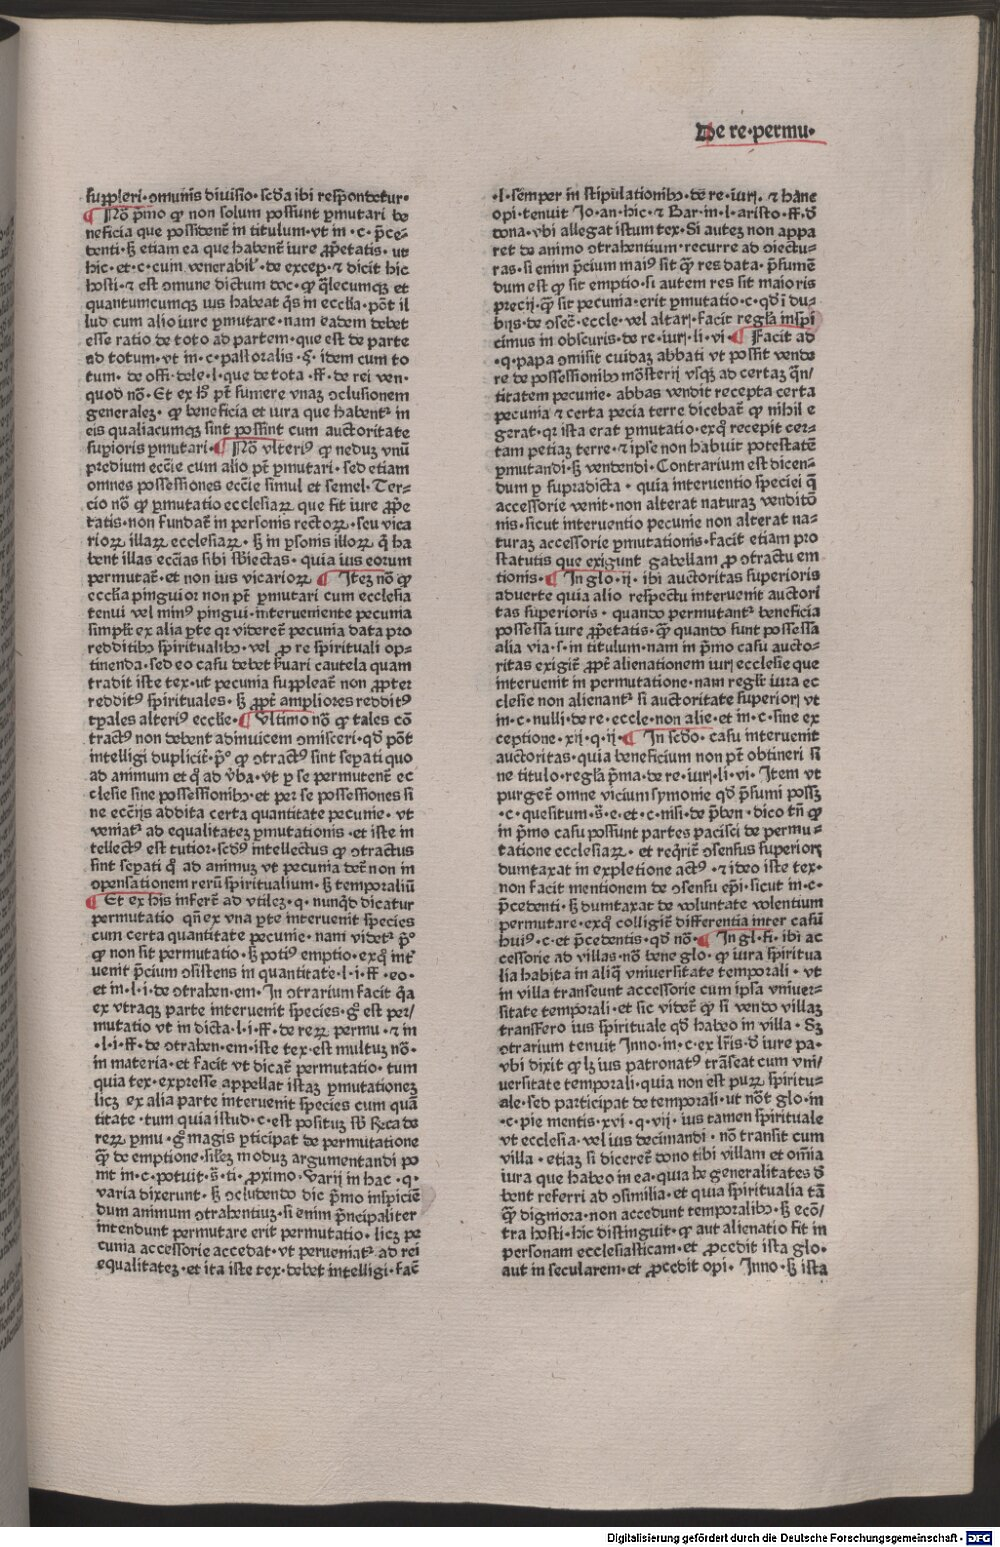 De re·permu·
suppleri·ꝯmunis divisio·scďa ibi respondetur·
¶ Nō pͥmo ꝙ non solum possunt ꝑmutari be
neficia que possident̄ in titulum·vt in·c·p̄ce⸗
denti·ꝫ etiam ea que habent̄ iure ꝓp̄etatis·ut
hic·et·c·cum venerabil̕·de excep·⁊ dicit hic
hosti·⁊ est ꝯmune dictum doc·ꝙ q̄lecumqꝫ et
quantumcumqꝫ ius habeat q̄s in eccłia·pōt il
lud cum alio iure ꝑmutare·nam eadem debet
esse ratio de toto ad partem·que est de parte
ad totum·vt in·c·pastoralis·§·idem cum to
tum·de offi·dele·l·que de tota·ff·de rei ven·
quod nō·Et ex hͦ pt̄ sumere vnaꝫ ꝯclusionem
generaleꝫ·ꝙ beneficia et iura que habentͬ in
eis qualiacumqꝫ sint possint cum auctoritate
supioris ꝑmutari·¶ Nō vlteriꝰ ꝙ neduꝫ vnū
predium ecc̄ie cum alio pt̄ ꝑmutari·sed etiam
omnes possessiones ecc̄ie simul et semel·Ter⸗
cio nō ꝙ ꝑmutatio ecclesiaꝝ que fit iure ꝓp̄e
tatis·non fundat̄ in personis rectoꝝ·seu vica
rioꝝ illaꝝ ecclesiaꝝ·ꝫ in ꝑsonis illoꝝ q̄ ha
bent illas ecc̄ias sibi sb̄iectas·quia ius eorum
permutat̄·et non ius vicarioꝝ ¶ Iteꝫ nō ꝙ
eccłia pinguior non pt̄ ꝑmutari cum ecclesia
tenui vel minꝰ pingui·interueniente pecunia
simplr̄ ex alia ꝑte qr videret̄ pecunia data pro
redditibꝰ spiritualibꝰ·vel ꝓ re spirituali op⸗
tinenda·sed eo casu debet ẜuari cautela quam
tradit iste tex·ut pecunia suppleat̄ non ꝓpter
redditꝰ spirituales·ꝫ ꝓpt̄ ampliores redditꝰ
tꝑales alteriꝰ eccłie·¶ Vltimo nō ꝙ tales cō
tractꝰ non debent adinuicem ꝯmisceri·qďpōt
intelligi duplicit̄·pͥꝰ ꝙ ꝯtractꝰ sint seꝑati quo
ad animum et qͦ ad v̄ba·vt ꝑ se permutent̄ ec
clesie sine possessionibꝰ·et per se possessiones si
ne ecc̄ijs addita certa quantitate pecunie·vt
veniatͬ ad equalitateꝫ ꝑmutationis·et iste in
tellectꝰ est tutior·scďs intellectus ꝙ ꝯtractus
sint seꝑati qͦ ad animuꝫ vt pecunia det̄ non in
ꝯpensationem rerū spiritualium·ꝫ temporaliū
¶ Et ex his infert̄ ad vtileꝫ·q·nunqͥd dicatur
permutatio qn̄ ex vna ꝑte interuenit species
cum certa quantitate pecunie·nam videtͬ pͥꝰ
ꝙ non sit permutatio·ꝫ potiꝰ emptio·exqͦ int̄
uenit p̄cium ꝯsistens in quantitate·l·i·ff·eo·
et in·l·i·de ꝯtrahen·em·In ꝯtrarium facit q̄a
ex vtraqꝫ parte interuenit species·gͦ est per/
mutatio vt in dicta·l·i·ff·de reꝝ permu·⁊ in
·l·i·ff·de ꝯtrahen·em·iste tex·est multuꝫ nō·
in materia·et facit vt dicat̄ permutatio·tum
quia tex·expresse appellat istaꝫ ꝑmutationeꝫ
licꝫ ex alia parte interuenit species cum quā
titate·tum quia istud·c·est posituꝫ sb̄ Rꝛca de
reꝝ ꝑmu·gͦ magis ꝑticipat de permutatione
ꝙ̄ de emptione·sil̕eꝫ moduꝫ argumentandi po
nit in·c·potuit·s̄·ti·ꝓximo·Varij in hac·q·
varia dixerunt·ꝫ ꝯcludendo dic pͥmo inspiciē
dum animum ꝯtrahentiuꝫ·si enim p̄ncipaliter
intendunt permutare erit permutatio·licꝫ pe
cunia accessorie accedat·vt perueniatͬ ad rei
equalitateꝫ·et ita iste tex·debet intelligi·fac̄
·l·semper in stipulationibꝰ·de re·iurͥ·⁊ hanc
opi·tenuit Jo·an·hic·⁊ Bar·in·l·aristo·ff·ď
dona·vbi allegat istum tex·Si auteꝫ non appa
ret de animo ꝯtrahentium·recurre ad ꝯiectu⸗
ras·si enim p̄cium maiꝰ sit ꝙ̄ res data·p̄sumē
dum est ꝙ sit emptio·si autem res sit maioris
precij·ꝙ̄ sit pecunia·erit ꝑmutatio·c·qďi du⸗
bijs·de ꝯsec̄·eccle·vel altarͥ·facit regl̄a inspi
cimus in obscuris·de re·iurͥ·li·vi·¶ Facit ad
·q·papa ꝯmisit cuidaꝫ abbati vt possit vende
re de possessionibꝰ mōsterij vsqꝫ ad certaꝫ q̄n/
titatem pecunie·abbas vendit recepta certa
pecunia ⁊ certa pecia terre dicebat̄ ꝙ nihil e
gerat·qr ista erat ꝑmutatio·exqͦ recepit cer⸗
tam petiaꝫ terre·⁊ ipse non habuit potestatē
ꝑmutandi·ꝫ vendendi·Contrarium est dicen⸗
dum ꝑ supradicta·quia interuentio speciei q̄
accessorie venit·non alterat naturaꝫ venditō
nis·sicut interuentio pecunie non alterat na⸗
turaꝫ accessorie ꝑmutationis·facit etiam pro
statutis que exigunt gabellam ꝓ ꝯtractu em
tionis·¶ In glo·ij·ibi auctoritas superioris
aduerte quia alio respectu interuenit auctori
tas superioris·quando permutantͬ beneficia
possessa iure ꝓp̄etatis·ꝙ̄ quando sunt possessa
alia via·s·in titulum·nam in pͥmo casu aucto⸗
ritas exigit̄ ꝓpt̄ alienationem iurͥ ecclesie que
interuenit in permutatione·nam reglr̄ iura ec
clesie non alienantͬ si auctoritate superiorͥ vt
in·c·nulli·de re·eccle·non alie·et in·c·sine ex
ceptione·xij·q·ij·¶ In scďo·casu interuenit
auctoritas·quia beneficium non pt̄ obtineri si
ne titulo·regl̄a pͥma·de re·iurͥ·li·vi·Item vt
purget̄ omne vicium symonie qďp̄sumi possꝫ
·c·quesitum·s̄·e·et·c·nisi·de p̄ben·dico tn̄ ꝙ
in pͥmo casu possunt partes pacisci de permu⸗
tatione ecclesiaꝝ·et reqͥrit̄ ꝯsensus superiorͥ
dumtaxat in expletione actꝰ·⁊ ideo iste tex·
non facit mentionem de ꝯsensu ep̄i·sicut in·c·
p̄cedenti·ꝫ dumtaxat de voluntate volentium
permutare·exqͦ colligit̄ differentia inter casū
huiꝰ·c·et p̄cedentis·qďnō·¶ In gl·fi·ibi ac
cessorie ad villas·nō bene glo·ꝙ iura spiritua
lia habita in aliqͣ vniuersitate temporali·vt
in villa transeunt accessorie cum ipsa vniuer⸗
sitate temporali·et sic videt̄ ꝙ si vendo villaꝫ
transfero ius spirituale qďhabeo in villa·Sꝫ
ꝯtrarium tenuit Inno·in·c·ex lr̄is·ď iure pa⸗
vbi dixit ꝙ lꝫ ius patronatꝰ trāseat cum vni/
uersitate temporali·quia non est puꝝ spiritu⸗
ale·sed participat de temporali·ut nōt glo·in
·c·pie mentis·xvi·q·vij·ius tamen spirituale
vt ecclesia·vel ius decimandi·nō transit cum
villa·etiaꝫ si diceret̄ dono tibi villam et oīa
iura que habeo in ea·quia he generalitates ď
bent referri ad ꝯsimilia·et quia spiritualia tā
ꝙ̄ digniora·non accedunt temporalibꝰ·ꝫ ecō/
tra hosti·hic distinguit·ꝙ aut alienatio fit in
personam ecclesiasticam·et ꝓcedit ista glo·
aut in secularem·et ꝓcedit opi·Inno·ꝫ ista
Digitalisierung gefördert durch die Deutsche Forschungsgemeinschaft · DFG